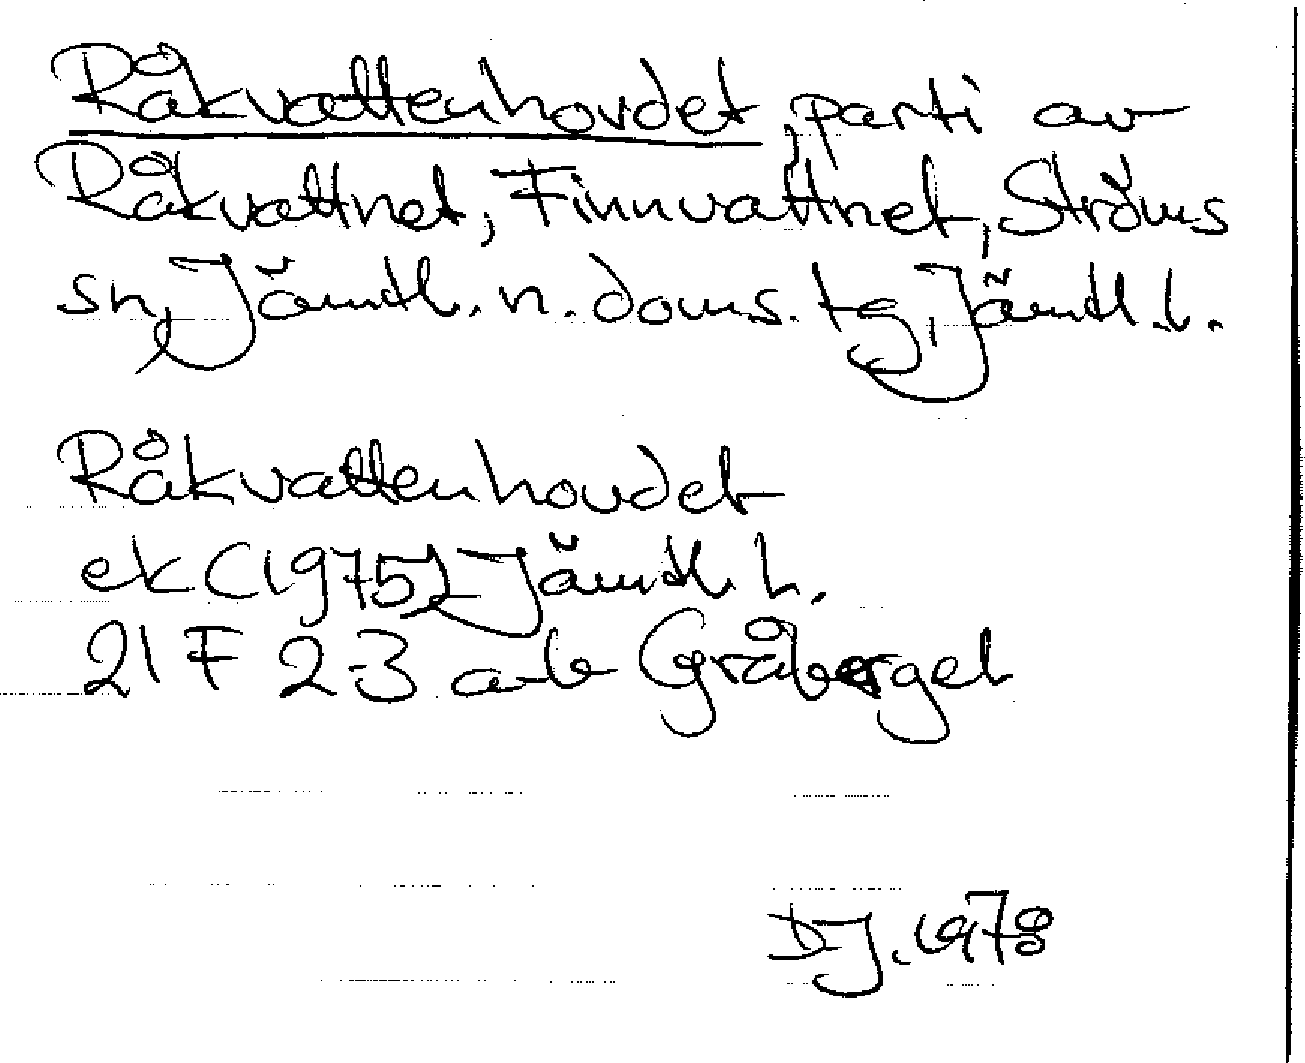 Råkvattenhovdet, parti av
Råkvattnet, Finnvattnet, Ströms
sn, Jämtl. n. doms. tg, Jämtl. l.
Råkvattenhovdet
ek (1975) Jämtl. l.
21 F 2-3 a-b Gråberget
DJ. 1978